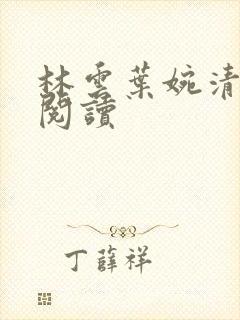 林雲葉婉清
閱讀
丁薛祥